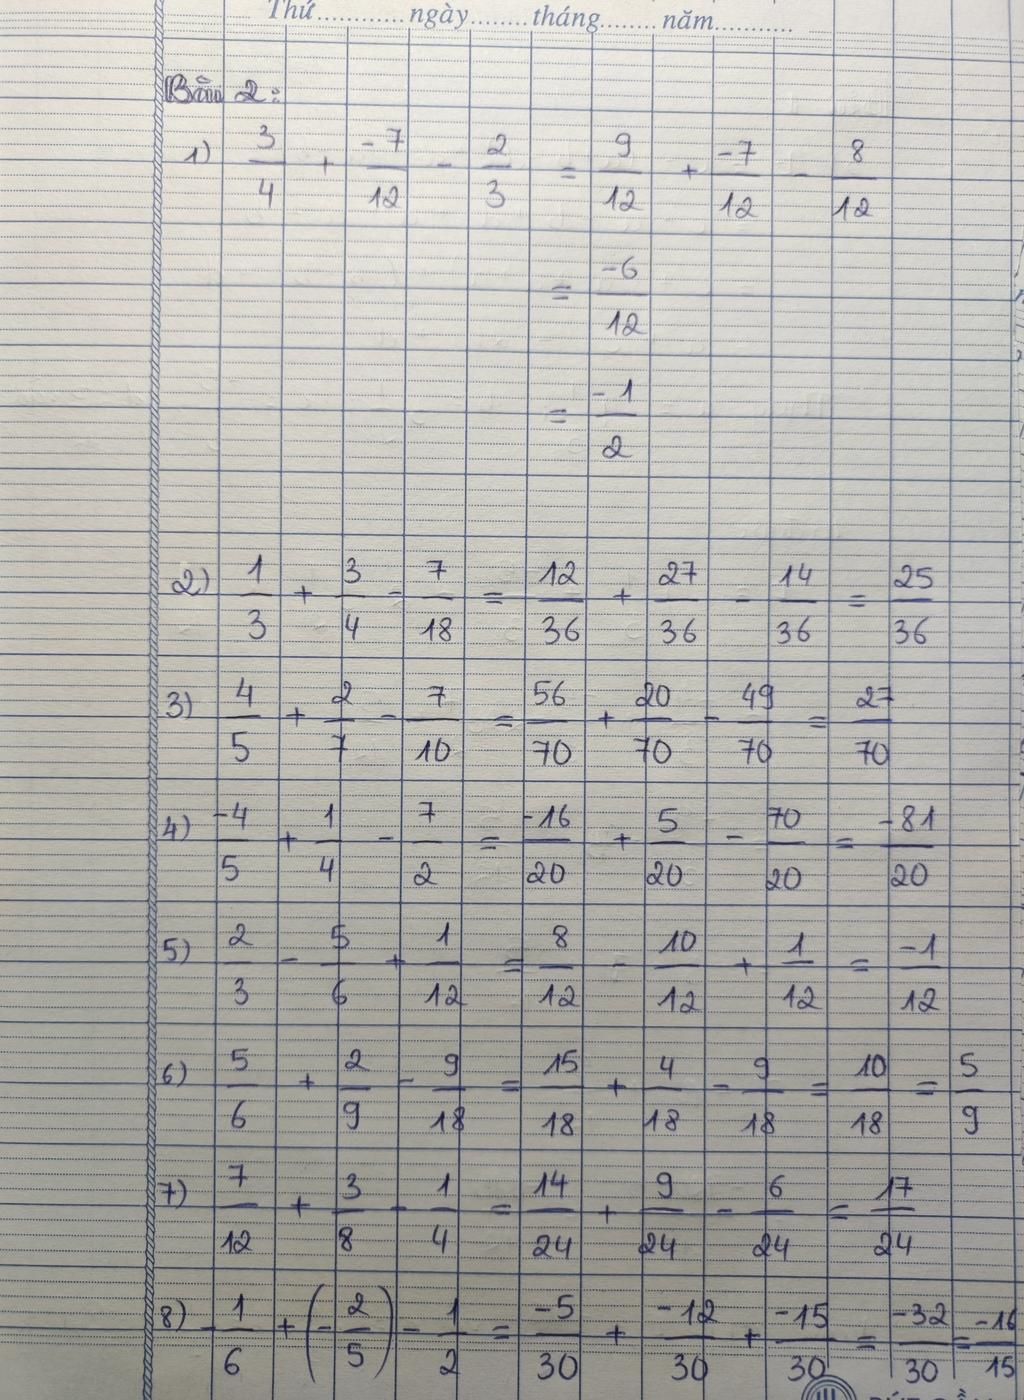 Thứ............ngày........tháng........năm...........
Bài 2:
1) 3/4 + -7/12 - 2/3 = 9/12 + -7/12 - 8/12
= -6/12
= -1/2
2) 1/3 + 3/4 - 7/18 = 12/36 + 27/36 - 14/36 = 25/36
3) 4/5 + 2/7 - 7/10 = 56/70 + 20/70 - 49/70 = 27/70
4) -4/5 + 1/4 - 7/2 = -16/20 + 5/20 - 70/20 = -81/20
5) 2/3 - 5/6 + 1/12 = 8/12 - 10/12 + 1/12 = -1/12
6) 5/6 + 2/9 - 9/18 = 15/18 + 4/18 - 9/18 = 10/18 = 5/9
7) 7/12 + 3/8 - 1/4 = 14/24 + 9/24 - 6/24 = 17/24
8) -1/6 + (-2/5) - 1/2 = -5/30 + -12/30 + -15/30 = -32/30 = -16/15